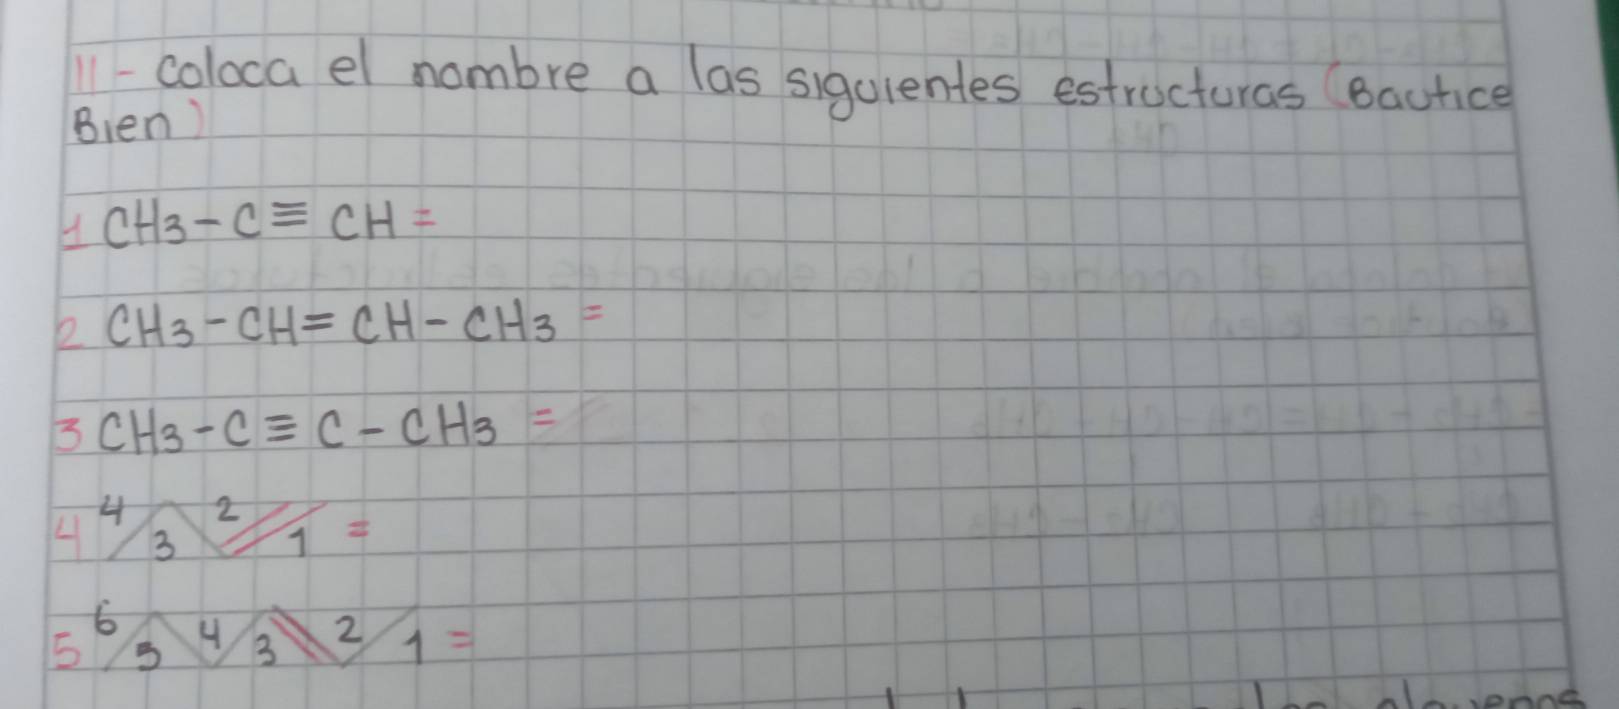 11- coloca el nombre a las siguientes estructuras (Bautice
Bien)
1 CH3-C≡CH=
2 CH3-CH=CH-CH3=
3 CH3-C≡C-CH3=
4 4 3 2 1 =
5 6 5 4 3 2 1 =